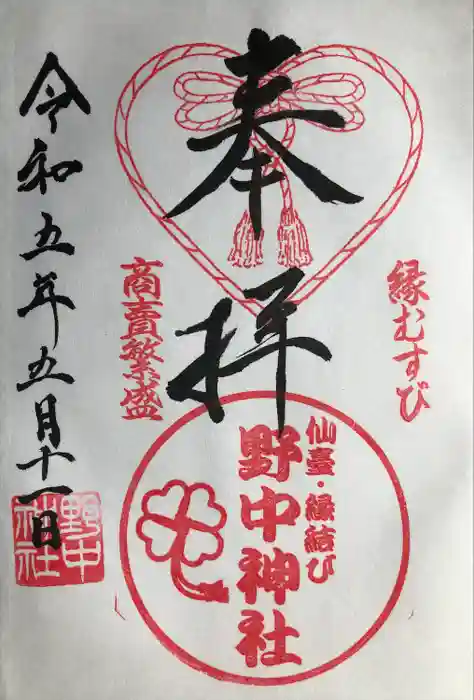 奉拝
縁むすび
商賣繁盛
仙臺・縁結び
野中神社
令和五年五月十一日
野中神社